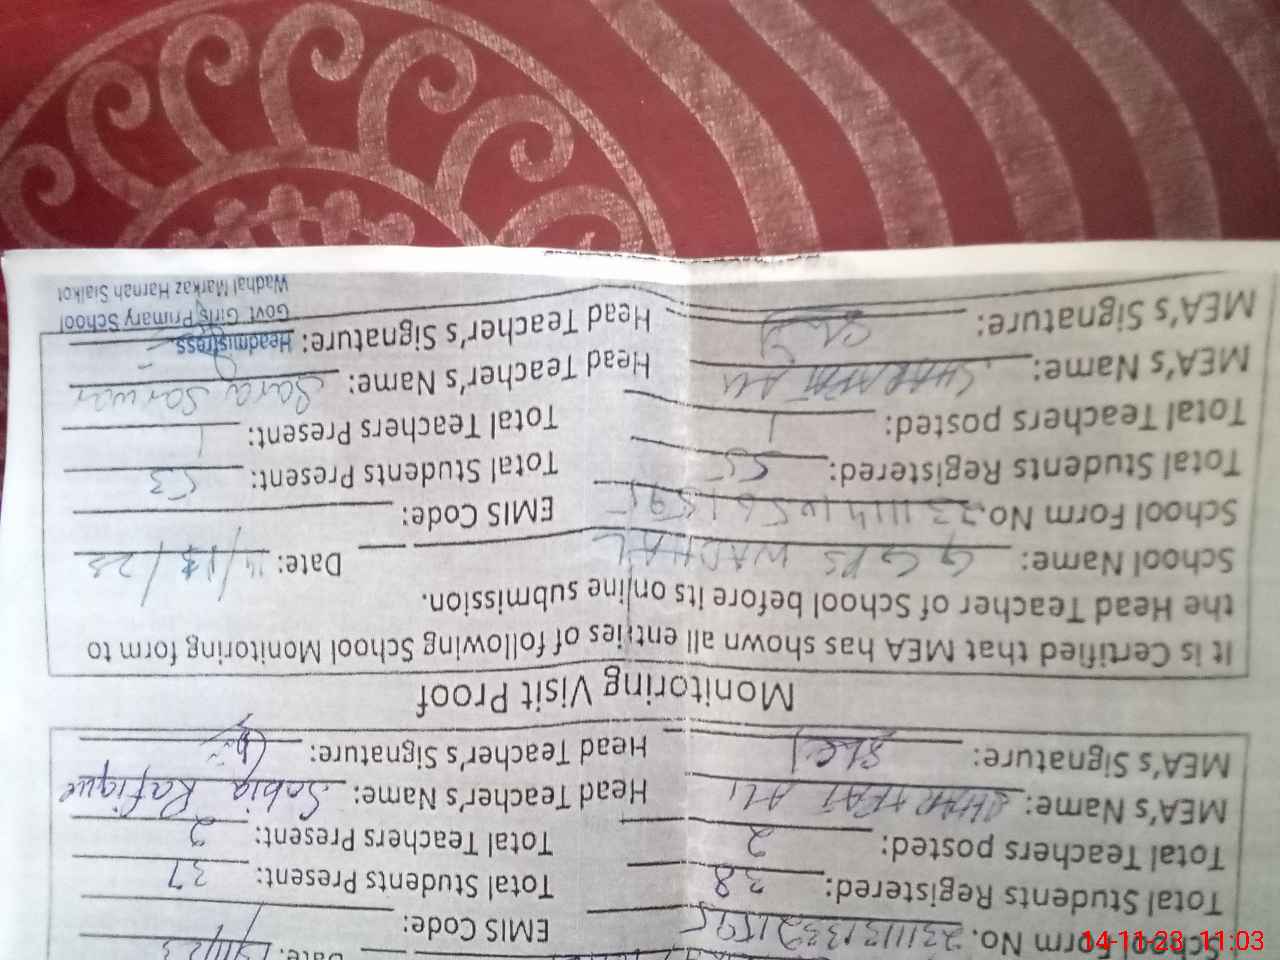 Date:
School Form No. EMIS Code:
Total Students Registered: 38 Total Students Present: 37
Total Teachers posted: 2 Total Teachers Present: 2
MEA's Name: SHARAFAT ALI Head Teacher's Name: Sobia Rafique
MEA's Signature: Head Teacher's Signature:
Monitoring Visit Proof
It is Certified that MEA has shown all entries of following School Monitoring form to
the Head Teacher of School before its online submission.
School Name: GGPS WADHAL Date: 14/11/23
School Form No. EMIS Code:
Total Students Registered: 55 Total Students Present: 53
Total Teachers posted: 1 Total Teachers Present: 1
MEA's Name: SHARAFAT ALI Head Teacher's Name: Sara Sarwar
MEA's Signature: Head Teacher's Signature:
Headmistress
Govt. Girls Primary School
Wadhal Markaz Harnah Sialkot
14-11-23 11:03